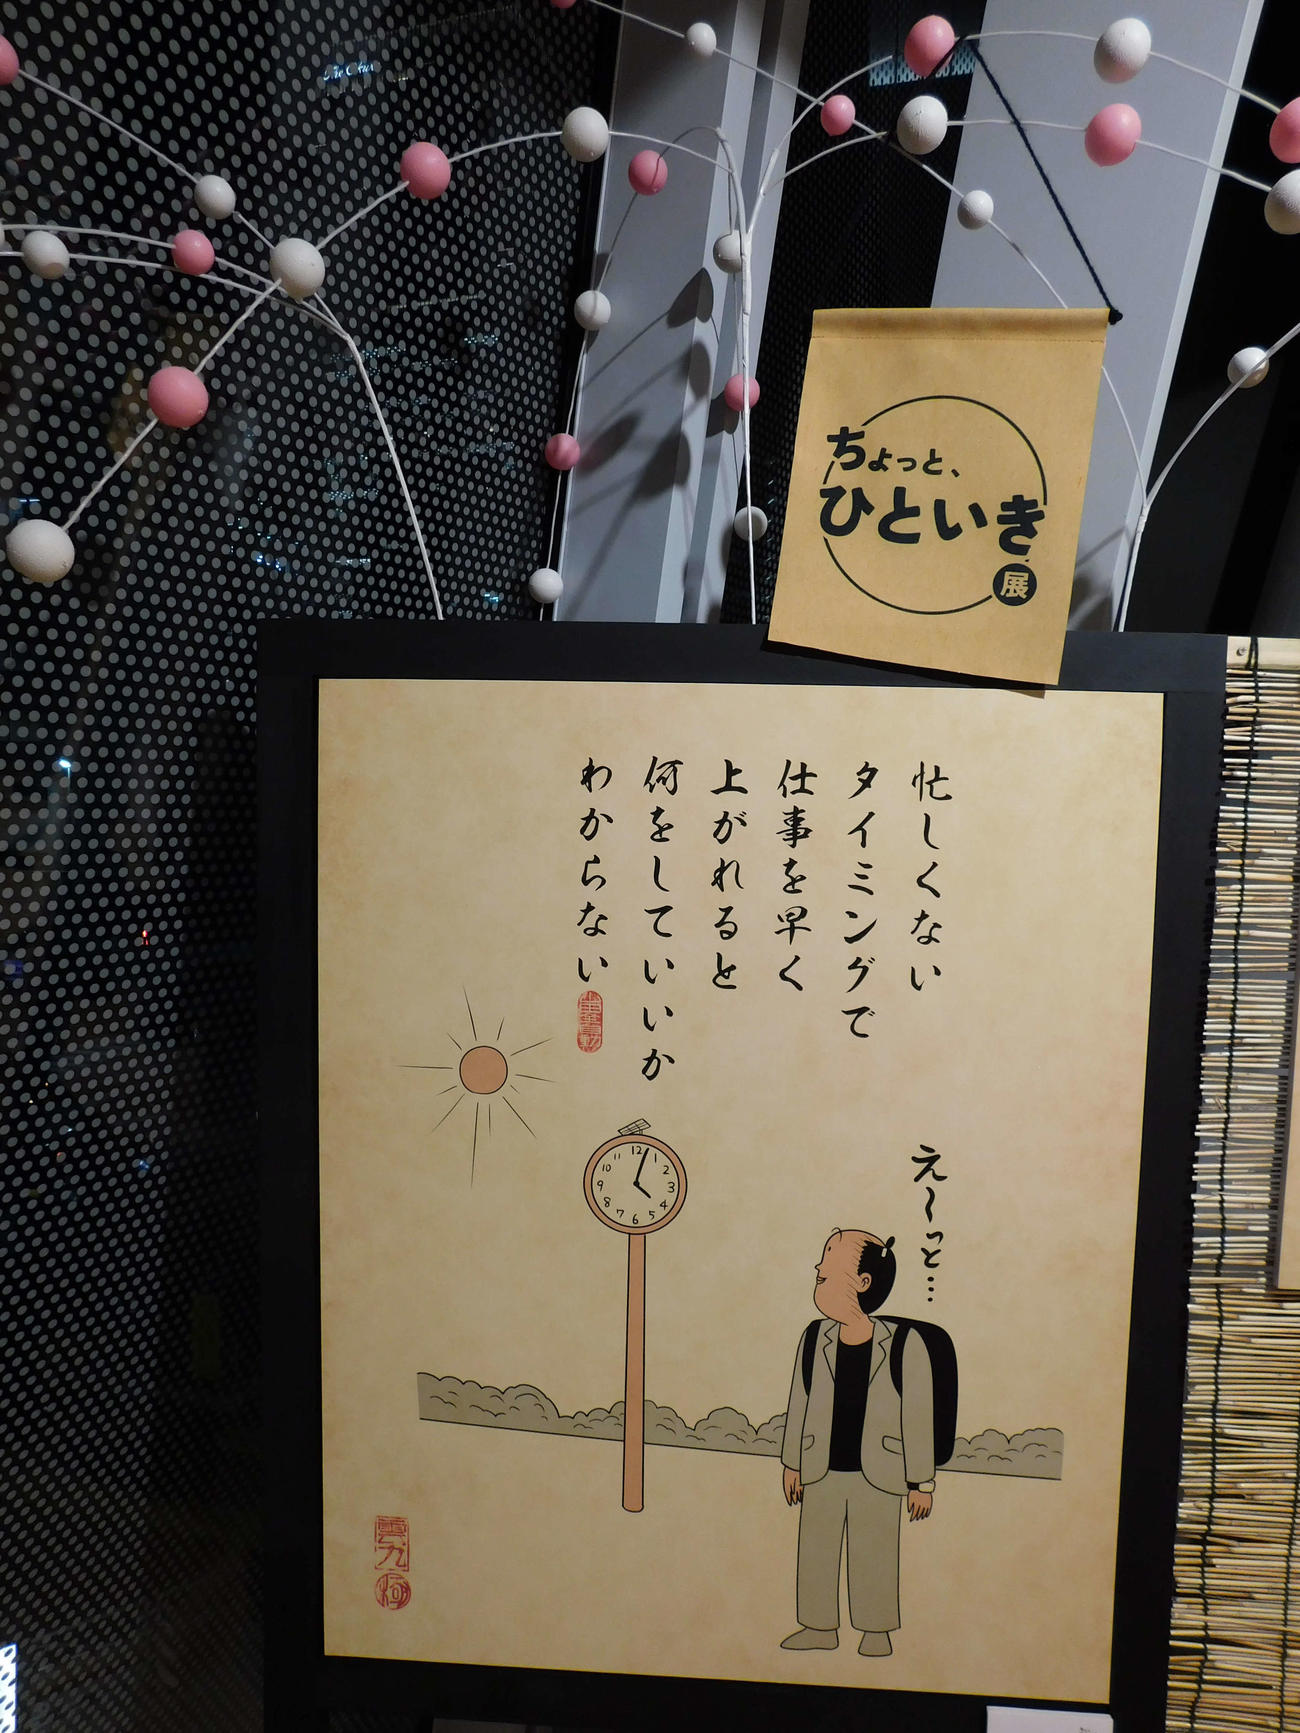 ちょっと、
ひといき
展
忙しくない
タイミングで
仕事を早く
上がれると
何をしていいか
わからない
え〜っと…
12
1
2
3
4
5
6
7
8
9
10
11